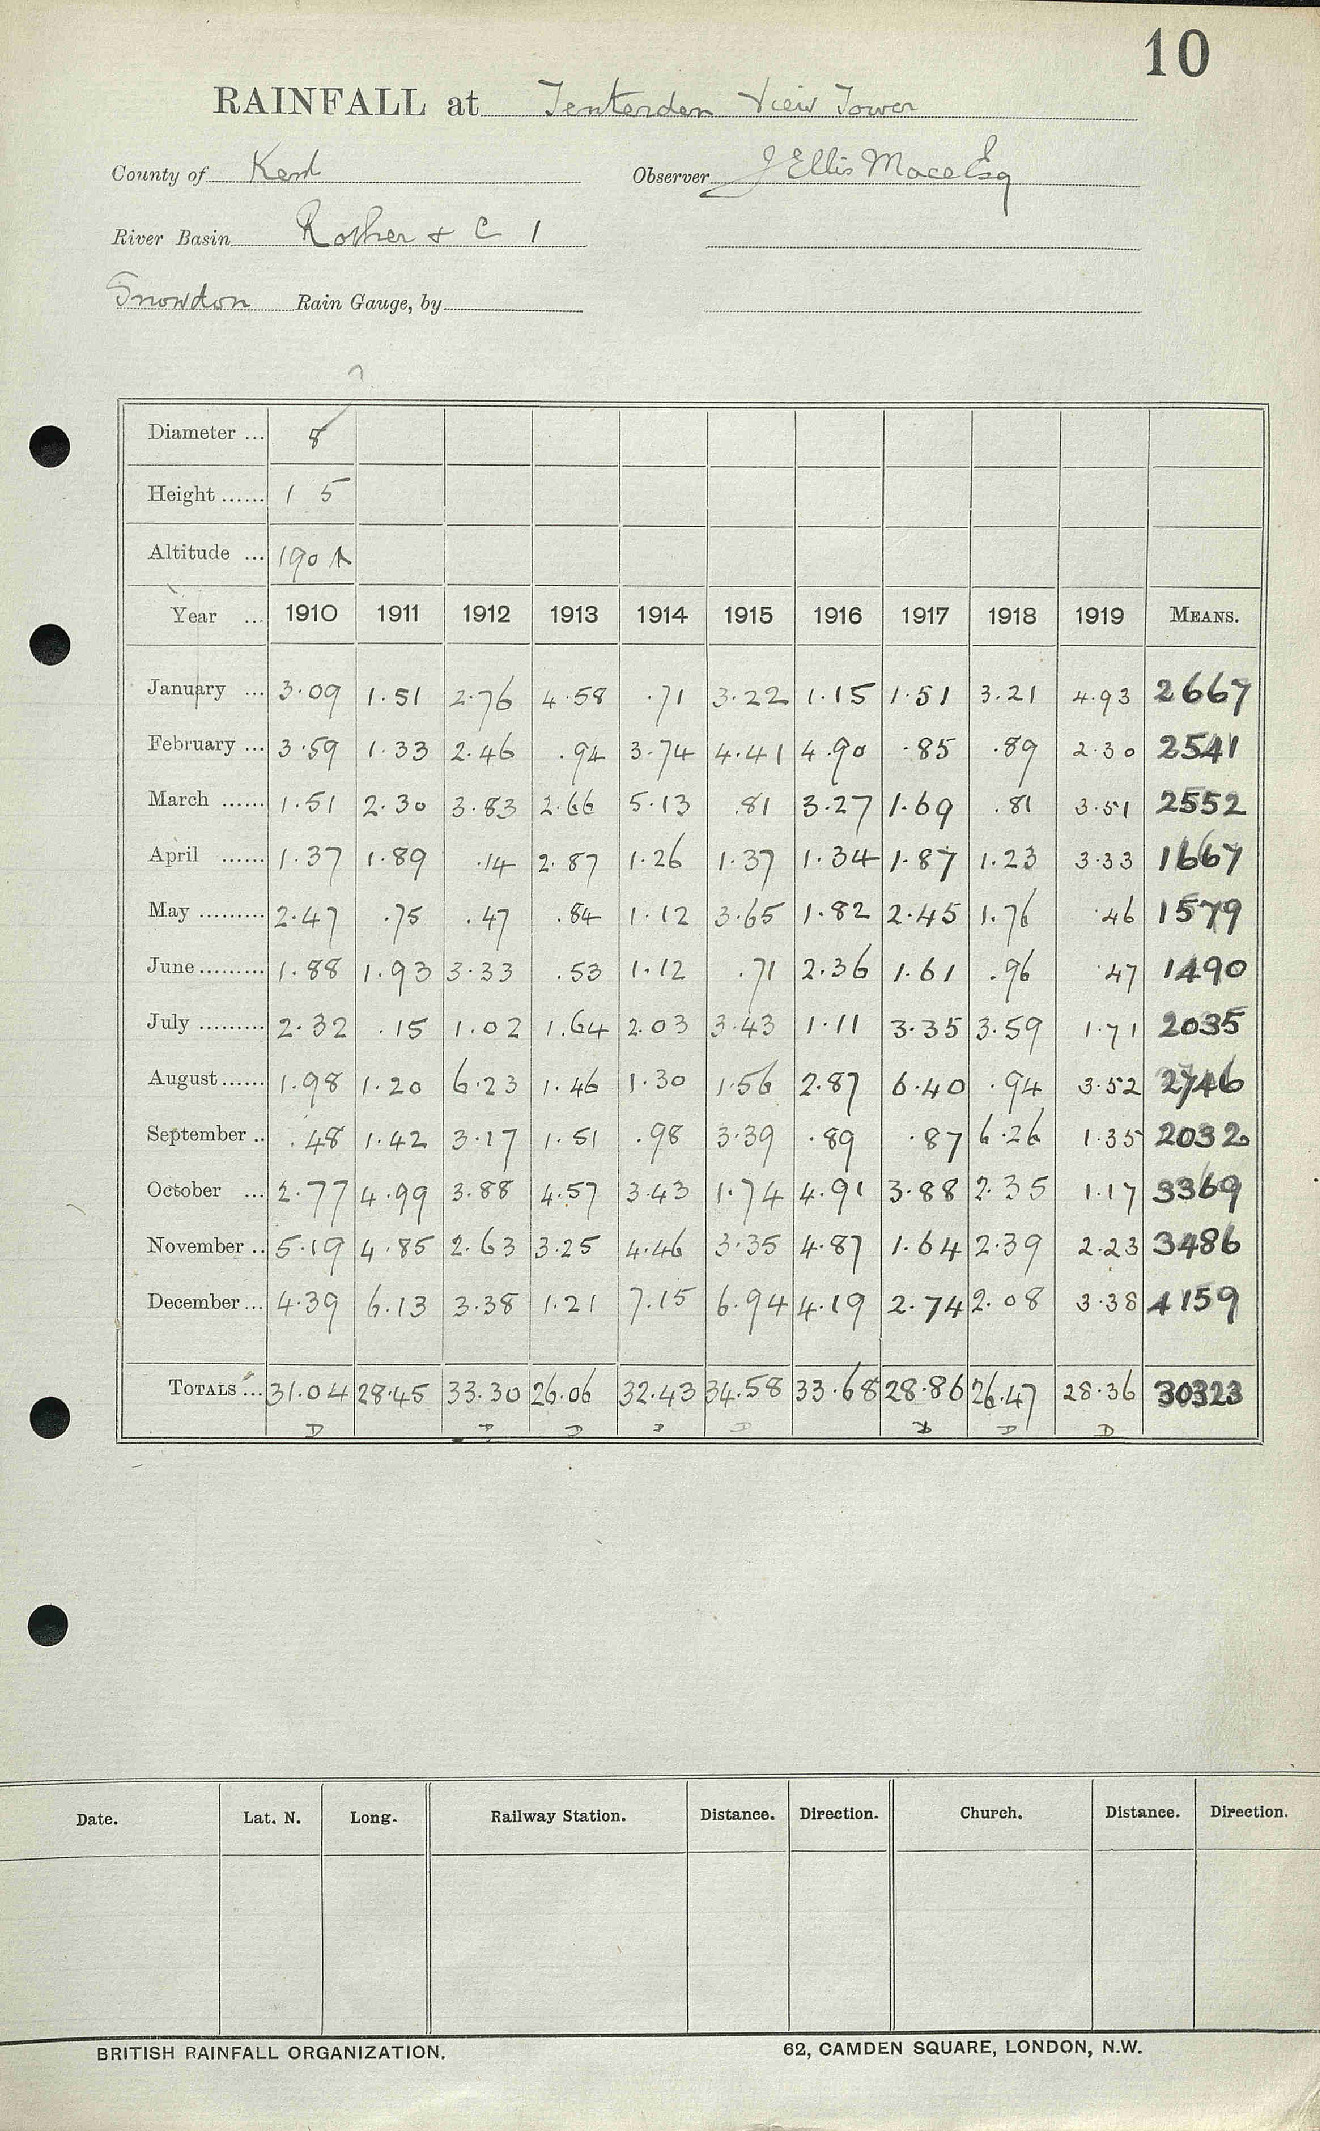 10
RAINFALL at Tenterden View Tower
County of Kent Observer J Ellis Mace Esq
River Basin Rother & C 1
Snowdon Rain Gauge, by
?
Diameter ... 8
Height ...... 1 5
Altitude ... 190
Year ... 1910 1911 1912 1913 1914 1915 1916 1917 1918 1919 MEANS.
January ... 3.09 1.51 2.76 4.58 .71 3.22 1.15 1.51 3.21 4.93 2667
February ... 3.59 1.33 2.46 .94 3.74 4.41 4.90 .85 .89 2.30 2541
March ...... 1.51 2.30 3.83 2.66 5.13 .81 3.27 1.69 .81 3.51 2552
April ...... 1.37 1.89 .14 2.87 1.26 1.37 1.34 1.87 1.23 3.33 1667
May ......... 2.47 .75 .47 .84 1.12 3.65 1.82 2.45 1.76 .46 1579
June ......... 1.88 1.93 3.33 .53 1.12 .71 2.36 1.61 .96 .47 1490
July ......... 2.32 .15 1.02 1.64 2.03 3.43 1.11 3.35 3.59 1.71 2035
August ...... 1.98 1.20 6.23 1.46 1.30 1.56 2.87 6.40 .94 3.52 2746
September .. .48 1.42 3.17 1.51 .98 3.39 .89 .87 6.26 1.35 2032
October ... 2.77 4.99 3.88 4.57 3.43 1.74 4.91 3.88 2.35 1.17 3369
November .. 5.19 4.85 2.63 3.25 4.46 3.35 4.87 1.64 2.39 2.23 3486
December ... 4.39 6.13 3.38 1.21 7.15 6.94 4.19 2.74 2.08 3.38 4159
TOTALS ... 31.04 28.45 33.30 26.06 32.43 34.58 33.68 28.86 26.47 28.36 30323
D D D D D D D D
Date. Lat. N. Long. Railway Station. Distance. Direction. Church. Distance. Direction.
BRITISH RAINFALL ORGANIZATION. 62, CAMDEN SQUARE, LONDON, N.W.